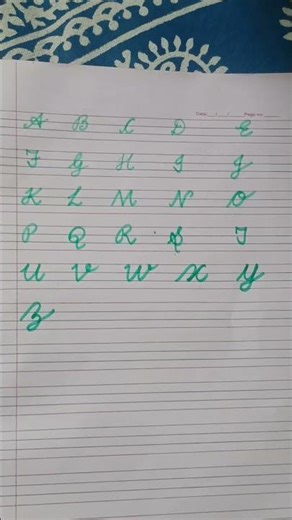 Date: / / Page no:
A B C D E
F G H I J
K L M N O
P Q R S T
U V W X Y
Z